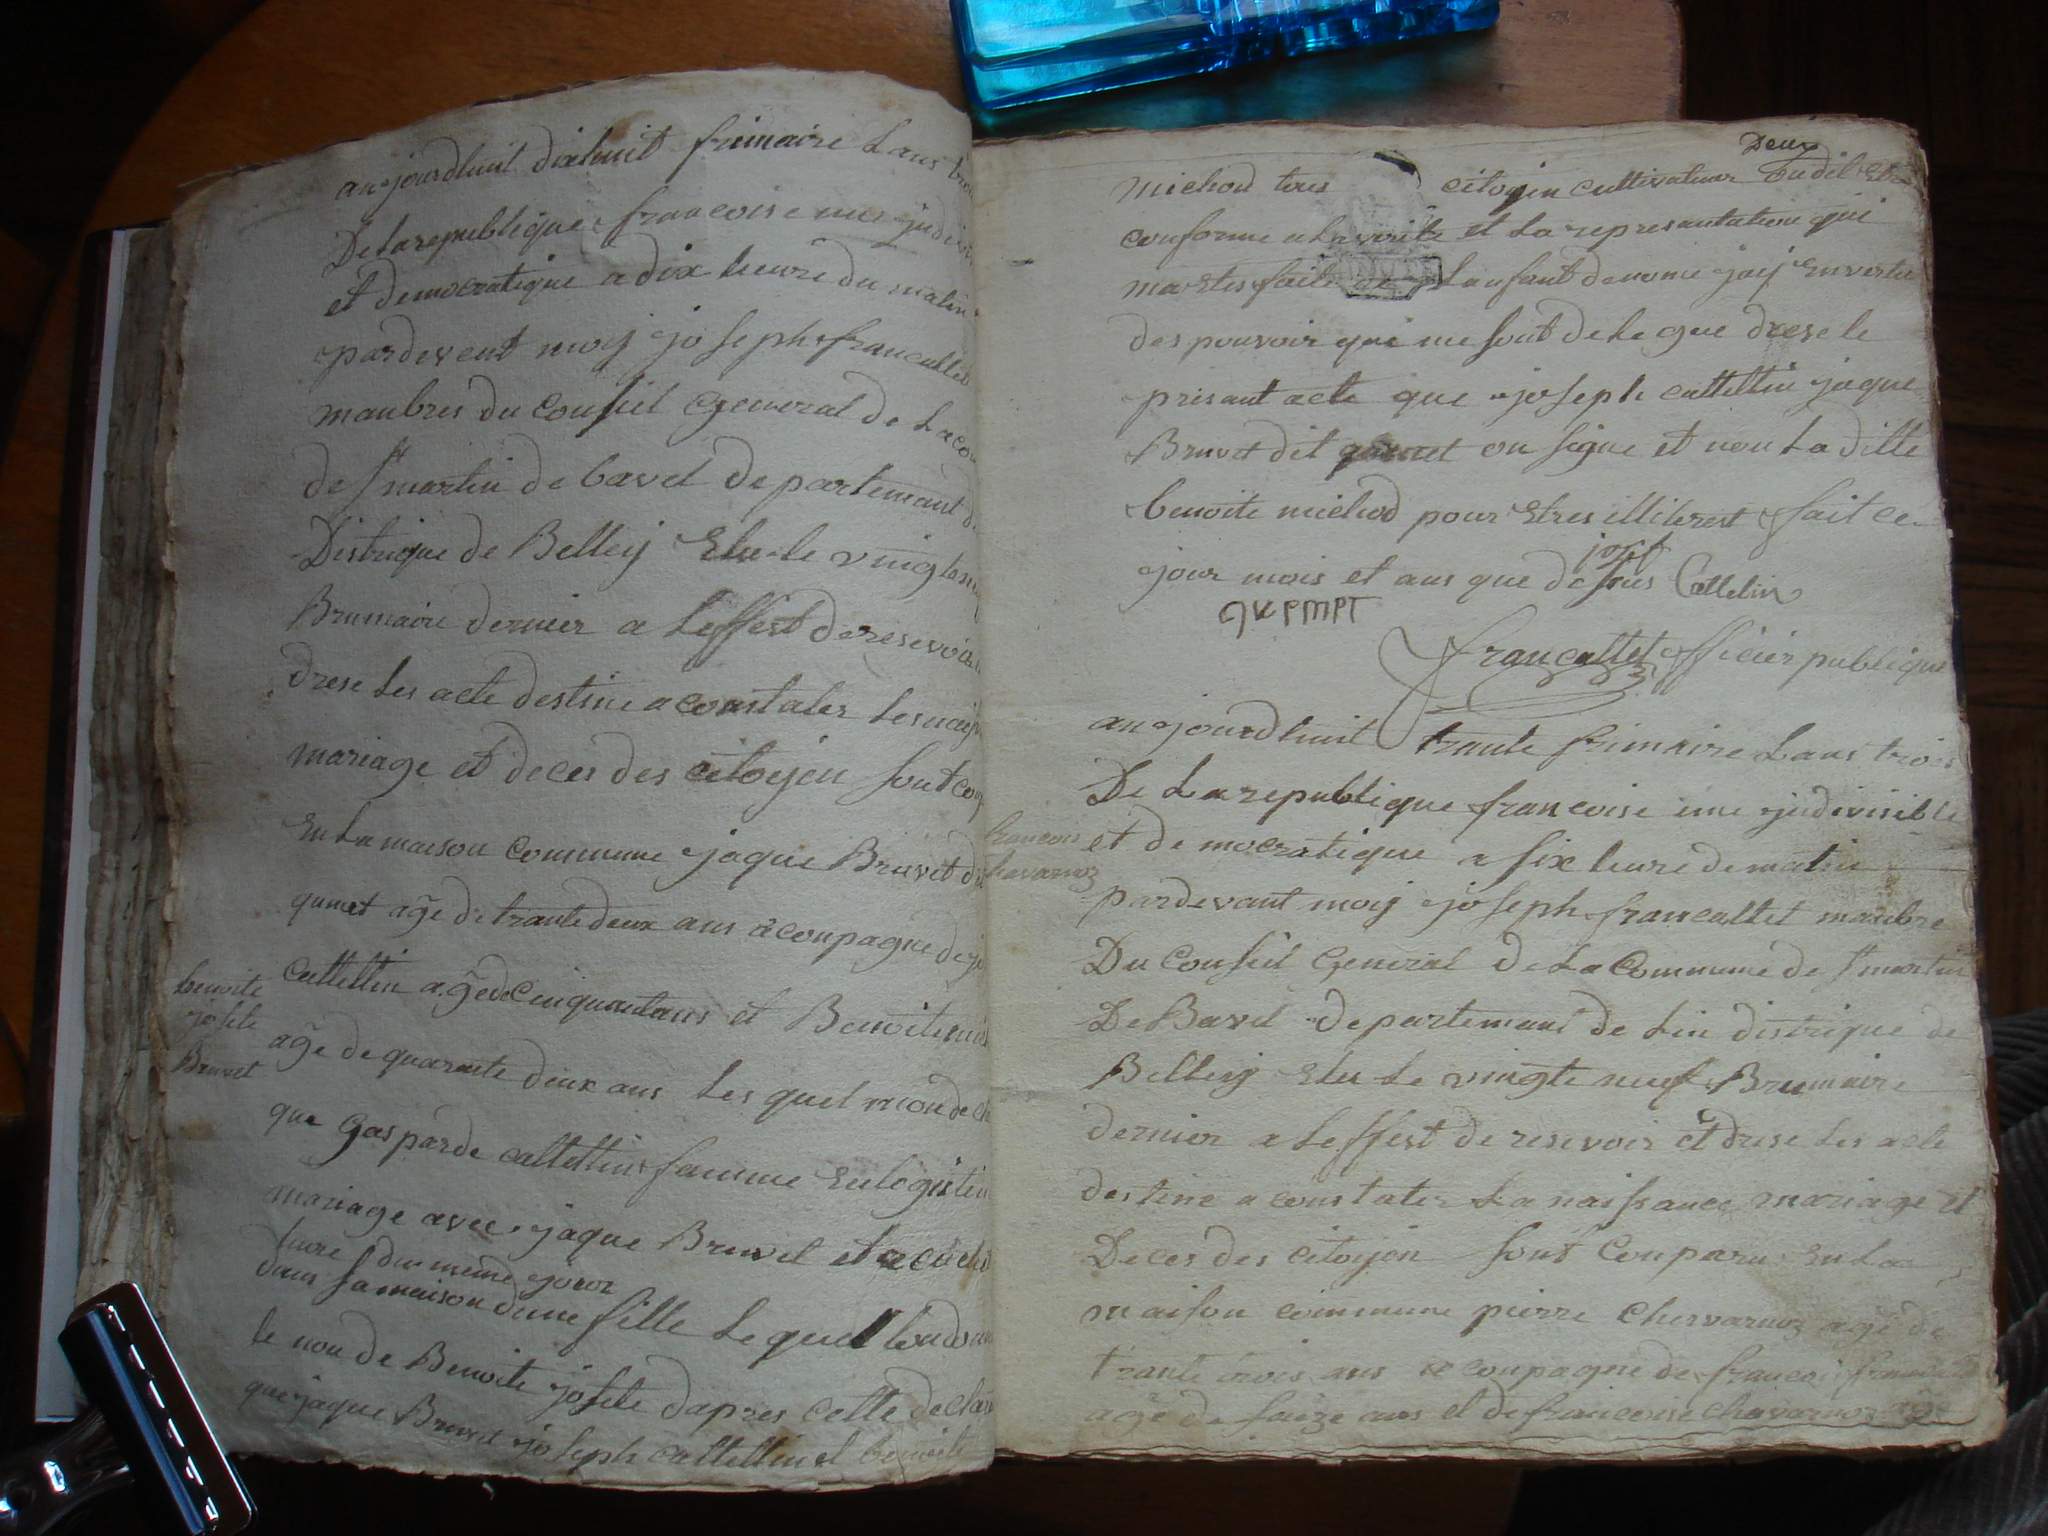 aujourdhuit dixhuit frimaire Lans
De La republique francoise une
et democratique a dix heure du matin
pardevent moy joseph francallet
manbres du Conseil General de La
de St martin de bavel departemant
Distrique de Belley Elu le vingt
Brumaire dernier a Leffest de resevoir
drese Les acte destine a constater Les
mariage et deces des citoyen sont
En La maison commune jaque Bruvet
qumet age de trante deux ans acconpagne de
benoite
josete
Bruvet
cattettin age de Cinquantans et Benoite
age de quarante deux ans Les quel mon de
que Gasparde cattettin famme En legistin
mariage avec jaque Bruvet et acouche
heure du meme jour
dans sa maison dunne fille Le quel
le non de Benoite josete dapres cette
que jaque Bruvet joseph cattettin et benoite
Deux
michod tous citoyen cultivateur
conforme a La verite et La representation qui
ma Etes faite de Lanfant denome jay En vertu
des pouvoir qui me sont delegue drese le
presant acte que joseph cattettin jaque
Bruvet dit qumet on signe et non La ditte
benoite michod pour Etres illiterest fait ce
jour mois et ans que desus josef Cattelin
qvemet
francallet officier publique
aujourdhuit trante frimaire Lans trois
De La republique francoise une indivisible
francois
chavarnoz
et democratique a six heure de matin
pardevant moy joseph francallet manbre
Du Conseil General de La Commune de St martin
De Bavel departemant de Lin distrique de
Belley Elu Le vingte neuf Brumaire
dernier a Leffest de resevoir et drese Les acte
destine a constater La naissance mariage et
Deces des citoyen sont conparu En La
maison commune pierre chervarnoz age de
trante trois ans acconpagne de francois
age de saize ans et de francoise chavarnoz